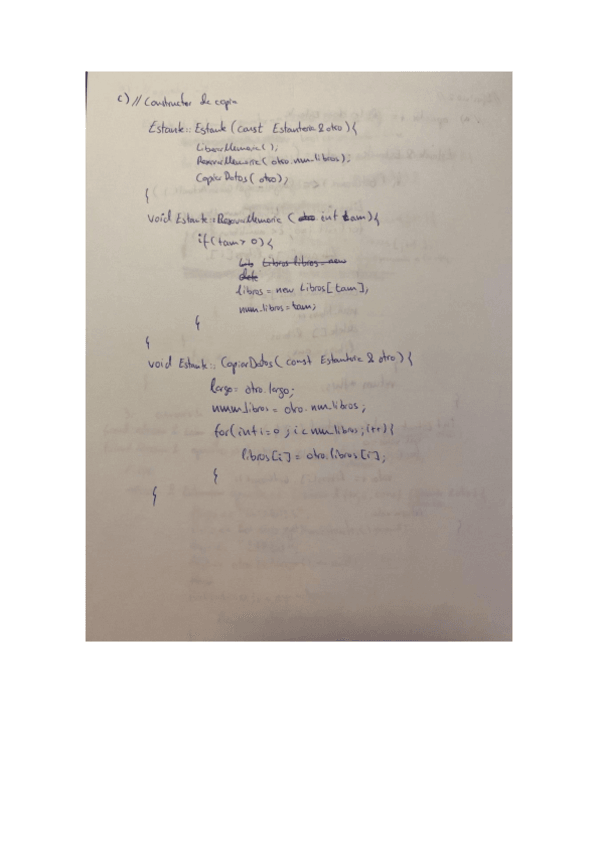 c) // Constructor de copia
Estante:: Estante (const Estanteria & otro) {
LiberarMemoria();
ReservarMemoria( otro.num_libros);
CopiarDatos( otro);
}
void Estante::ReservarMemoria ( otro. int tam) {
if(tam> 0) {
Lib Libros libros = new
dele
libros = new Libros[tam];
num_libros = tam;
}
}
void Estante:: CopiarDatos( const Estanteria & otro) {
largo = otro.largo;
num_libros = otro.num_libros;
for(int i=0 ; i < num_libros; i++) {
libros[i] = otro.libros[i];
}
}